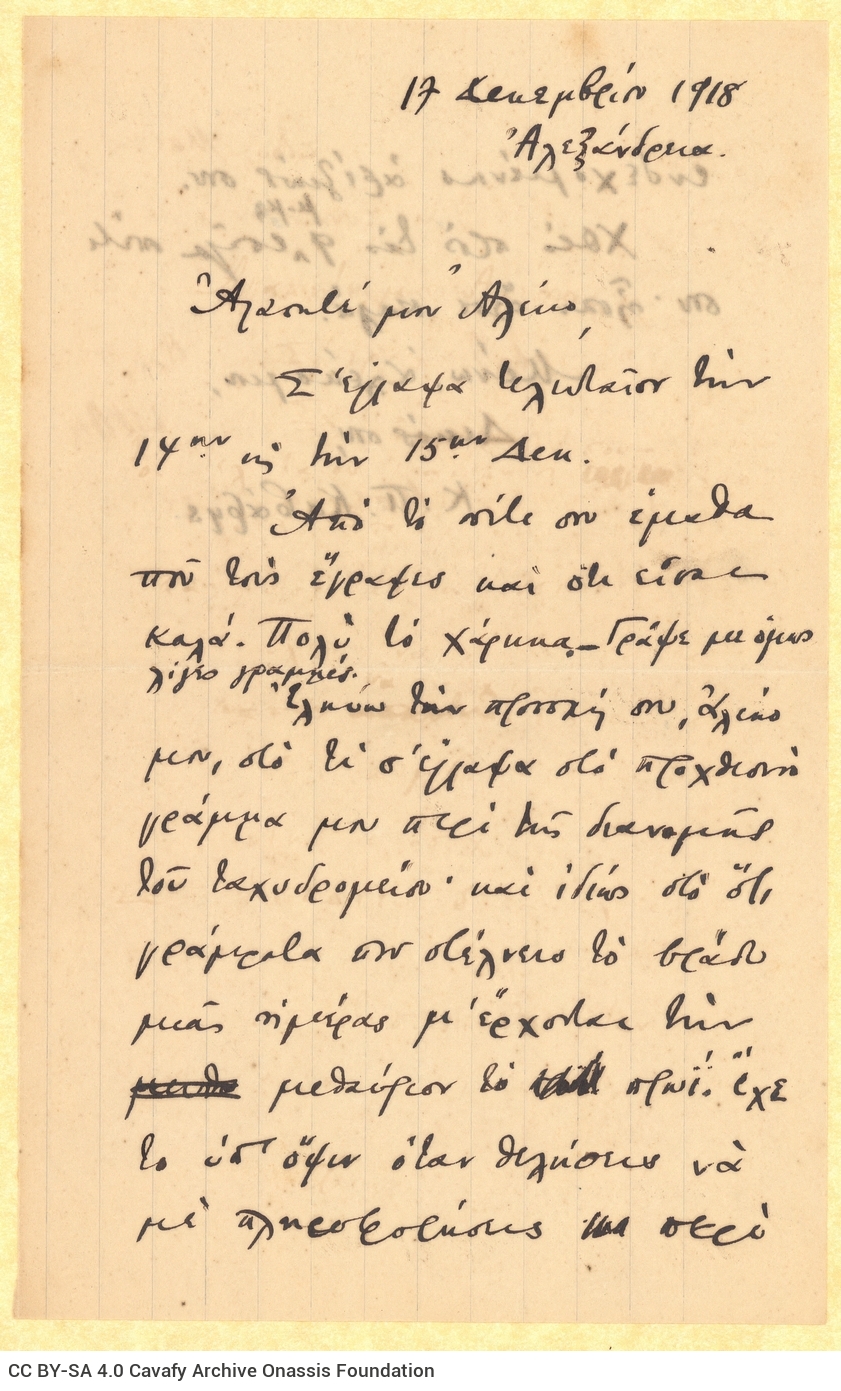 17 Δεκεμβρίου 1918
Ἀλεξάνδρεια.
Ἀγαπητέ μου Ἀλέκο,
Σ' ἔγραψα τελευταῖον τὴν
14ην κ τὴν 15ην Δεκ.
Ἀπὸ τὸ σπίτι σου ἔμαθα
ποῦ τοὺς ἔγραψες καὶ ὅτι εἶσαι
καλά. Πολὺ τὸ χάρηκα. – Γράψε με ὅμως
λίγες γραμμές.
Ἑλκύω τὴν προσοχή σου, Ἀλέκο
μου, στὸ τὶ σ' ἔγραψα στὸ προχθεσινὸ
γράμμα μου περὶ τῆς διανομῆς
τοῦ ταχυδρομείου· καὶ ἰδίως στὸ ὅτι
γράμματα που στέλνεις τὸ βράδυ
μιᾶς ἡμέρας μ' ἔρχονται τὴν
μεθαύριον τὸ πρωΐ. Ἔχε
το ὑπ' ὄψιν ὅταν θελήσεις νὰ
μὲ πληροφορήσεις περὶ
CC BY-SA 4.0 Cavafy Archive Onassis Foundation